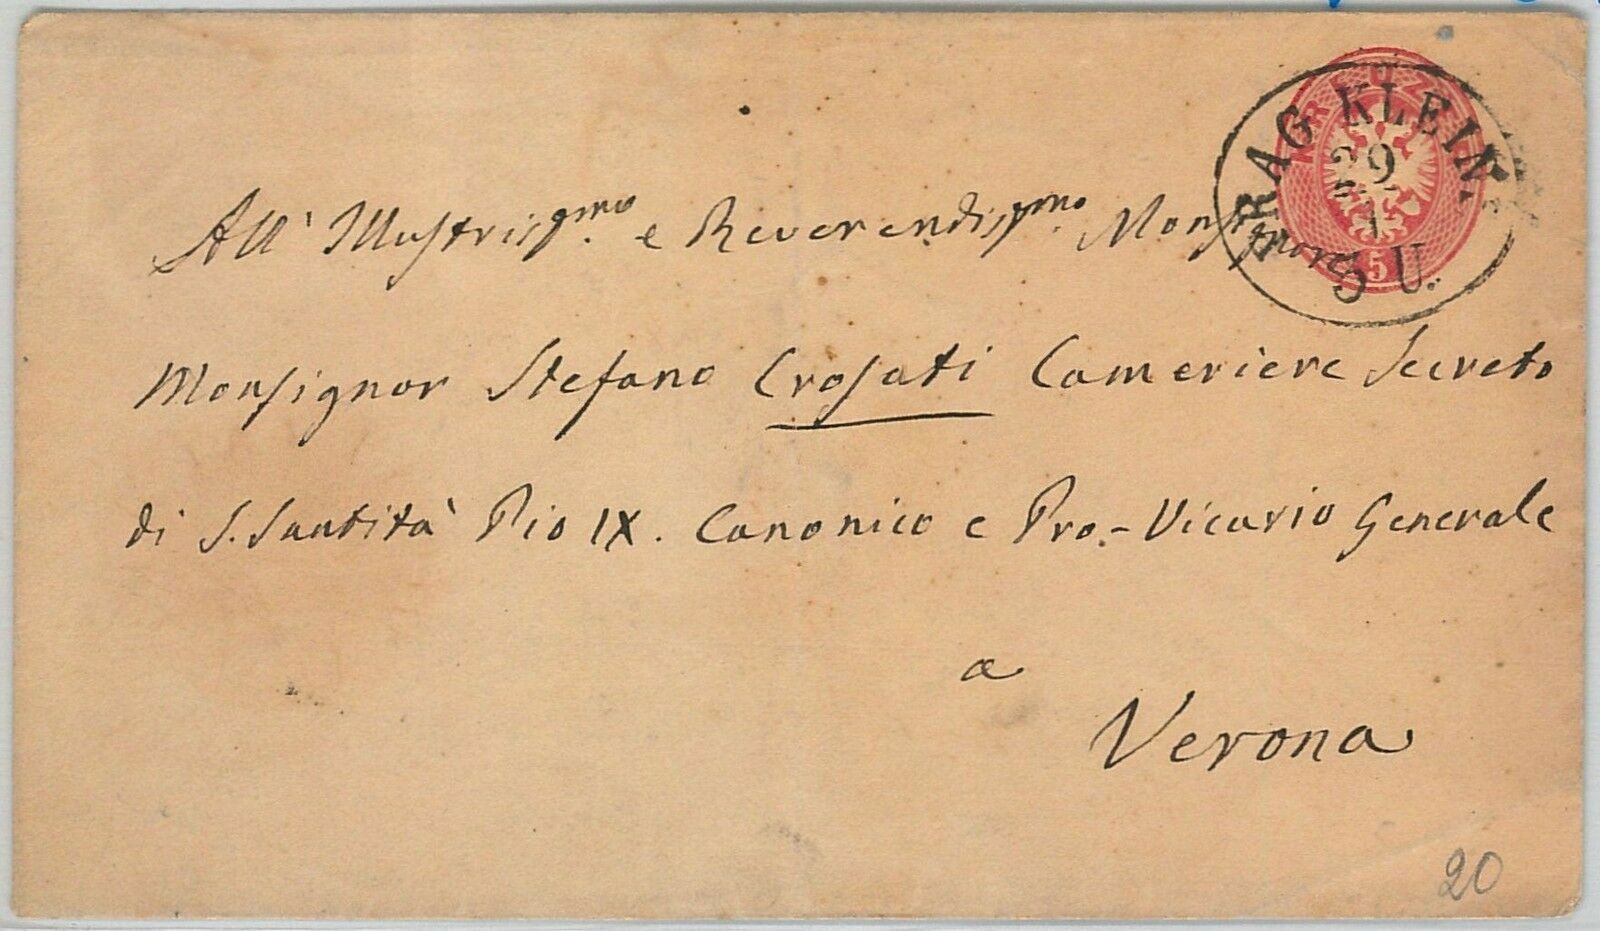 PRAG KLEIN.
29
1
5 U.
KREUZER
5
All' Illustrissmo. e Reverendissmo. Monsignore
Monsignor Stefano Crosati Cameriere Secreto
di S. Santità Pio IX. Canonico e Pro-Vicario Generale
a
Verona
20